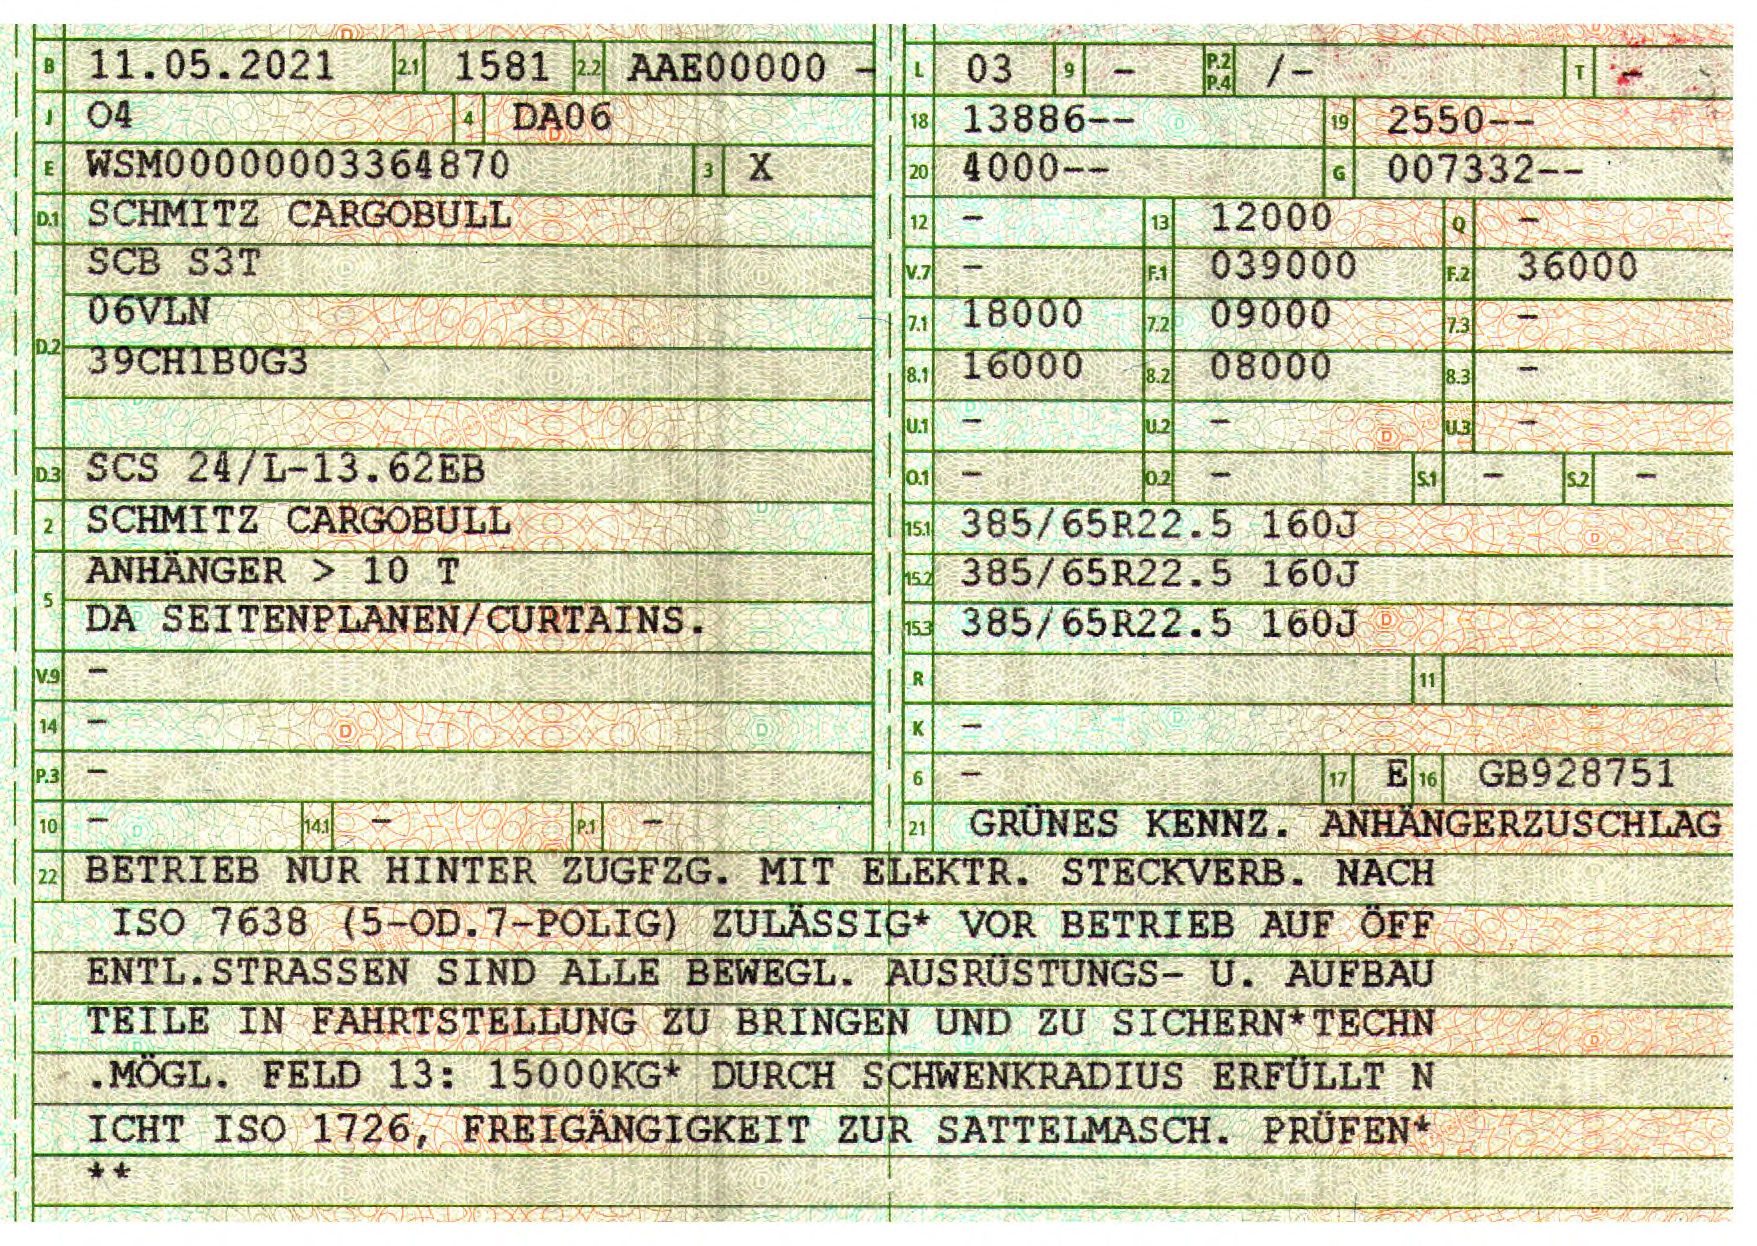 B 11.05.2021 2.1 1581 2.2 AAE00000 -
J 04 4 DA06
E WSM00000003364870 3 X
D.1 SCHMITZ CARGOBULL
SCB S3T
06VLN
D.2
39CH1B0G3
D.3 SCS 24/L-13.62EB
2 SCHMITZ CARGOBULL
ANHÄNGER > 10 T
5
DA SEITENPLANEN/CURTAINS.
V.9 -
14 -
P.3 -
10 - 14.1 - P.1 -
L 03 9 - P.2 P.4 /- T -
18 13886-- 19 2550--
20 4000-- G 007332--
12 - 13 12000 Q -
V.7 - F.1 039000 F.2 36000
7.1 18000 7.2 09000 7.3 -
8.1 16000 8.2 08000 8.3 -
U.1 - U.2 - U.3 -
O.1 - O.2 - S.1 - S.2 -
15.1 385/65R22.5 160J
15.2 385/65R22.5 160J
15.3 385/65R22.5 160J
R 11
K -
6 - 17 E 16 GB928751
21 GRÜNES KENNZ. ANHÄNGERZUSCHLAG
22 BETRIEB NUR HINTER ZUGFZG. MIT ELEKTR. STECKVERB. NACH
ISO 7638 (5-OD.7-POLIG) ZULÄSSIG* VOR BETRIEB AUF ÖFF
ENTL.STRASSEN SIND ALLE BEWEGL. AUSRÜSTUNGS- U. AUFBAU
TEILE IN FAHRTSTELLUNG ZU BRINGEN UND ZU SICHERN*TECHN
.MÖGL. FELD 13: 15000KG* DURCH SCHWENKRADIUS ERFÜLLT N
ICHT ISO 1726, FREIGÄNGIGKEIT ZUR SATTELMASCH. PRÜFEN*
**